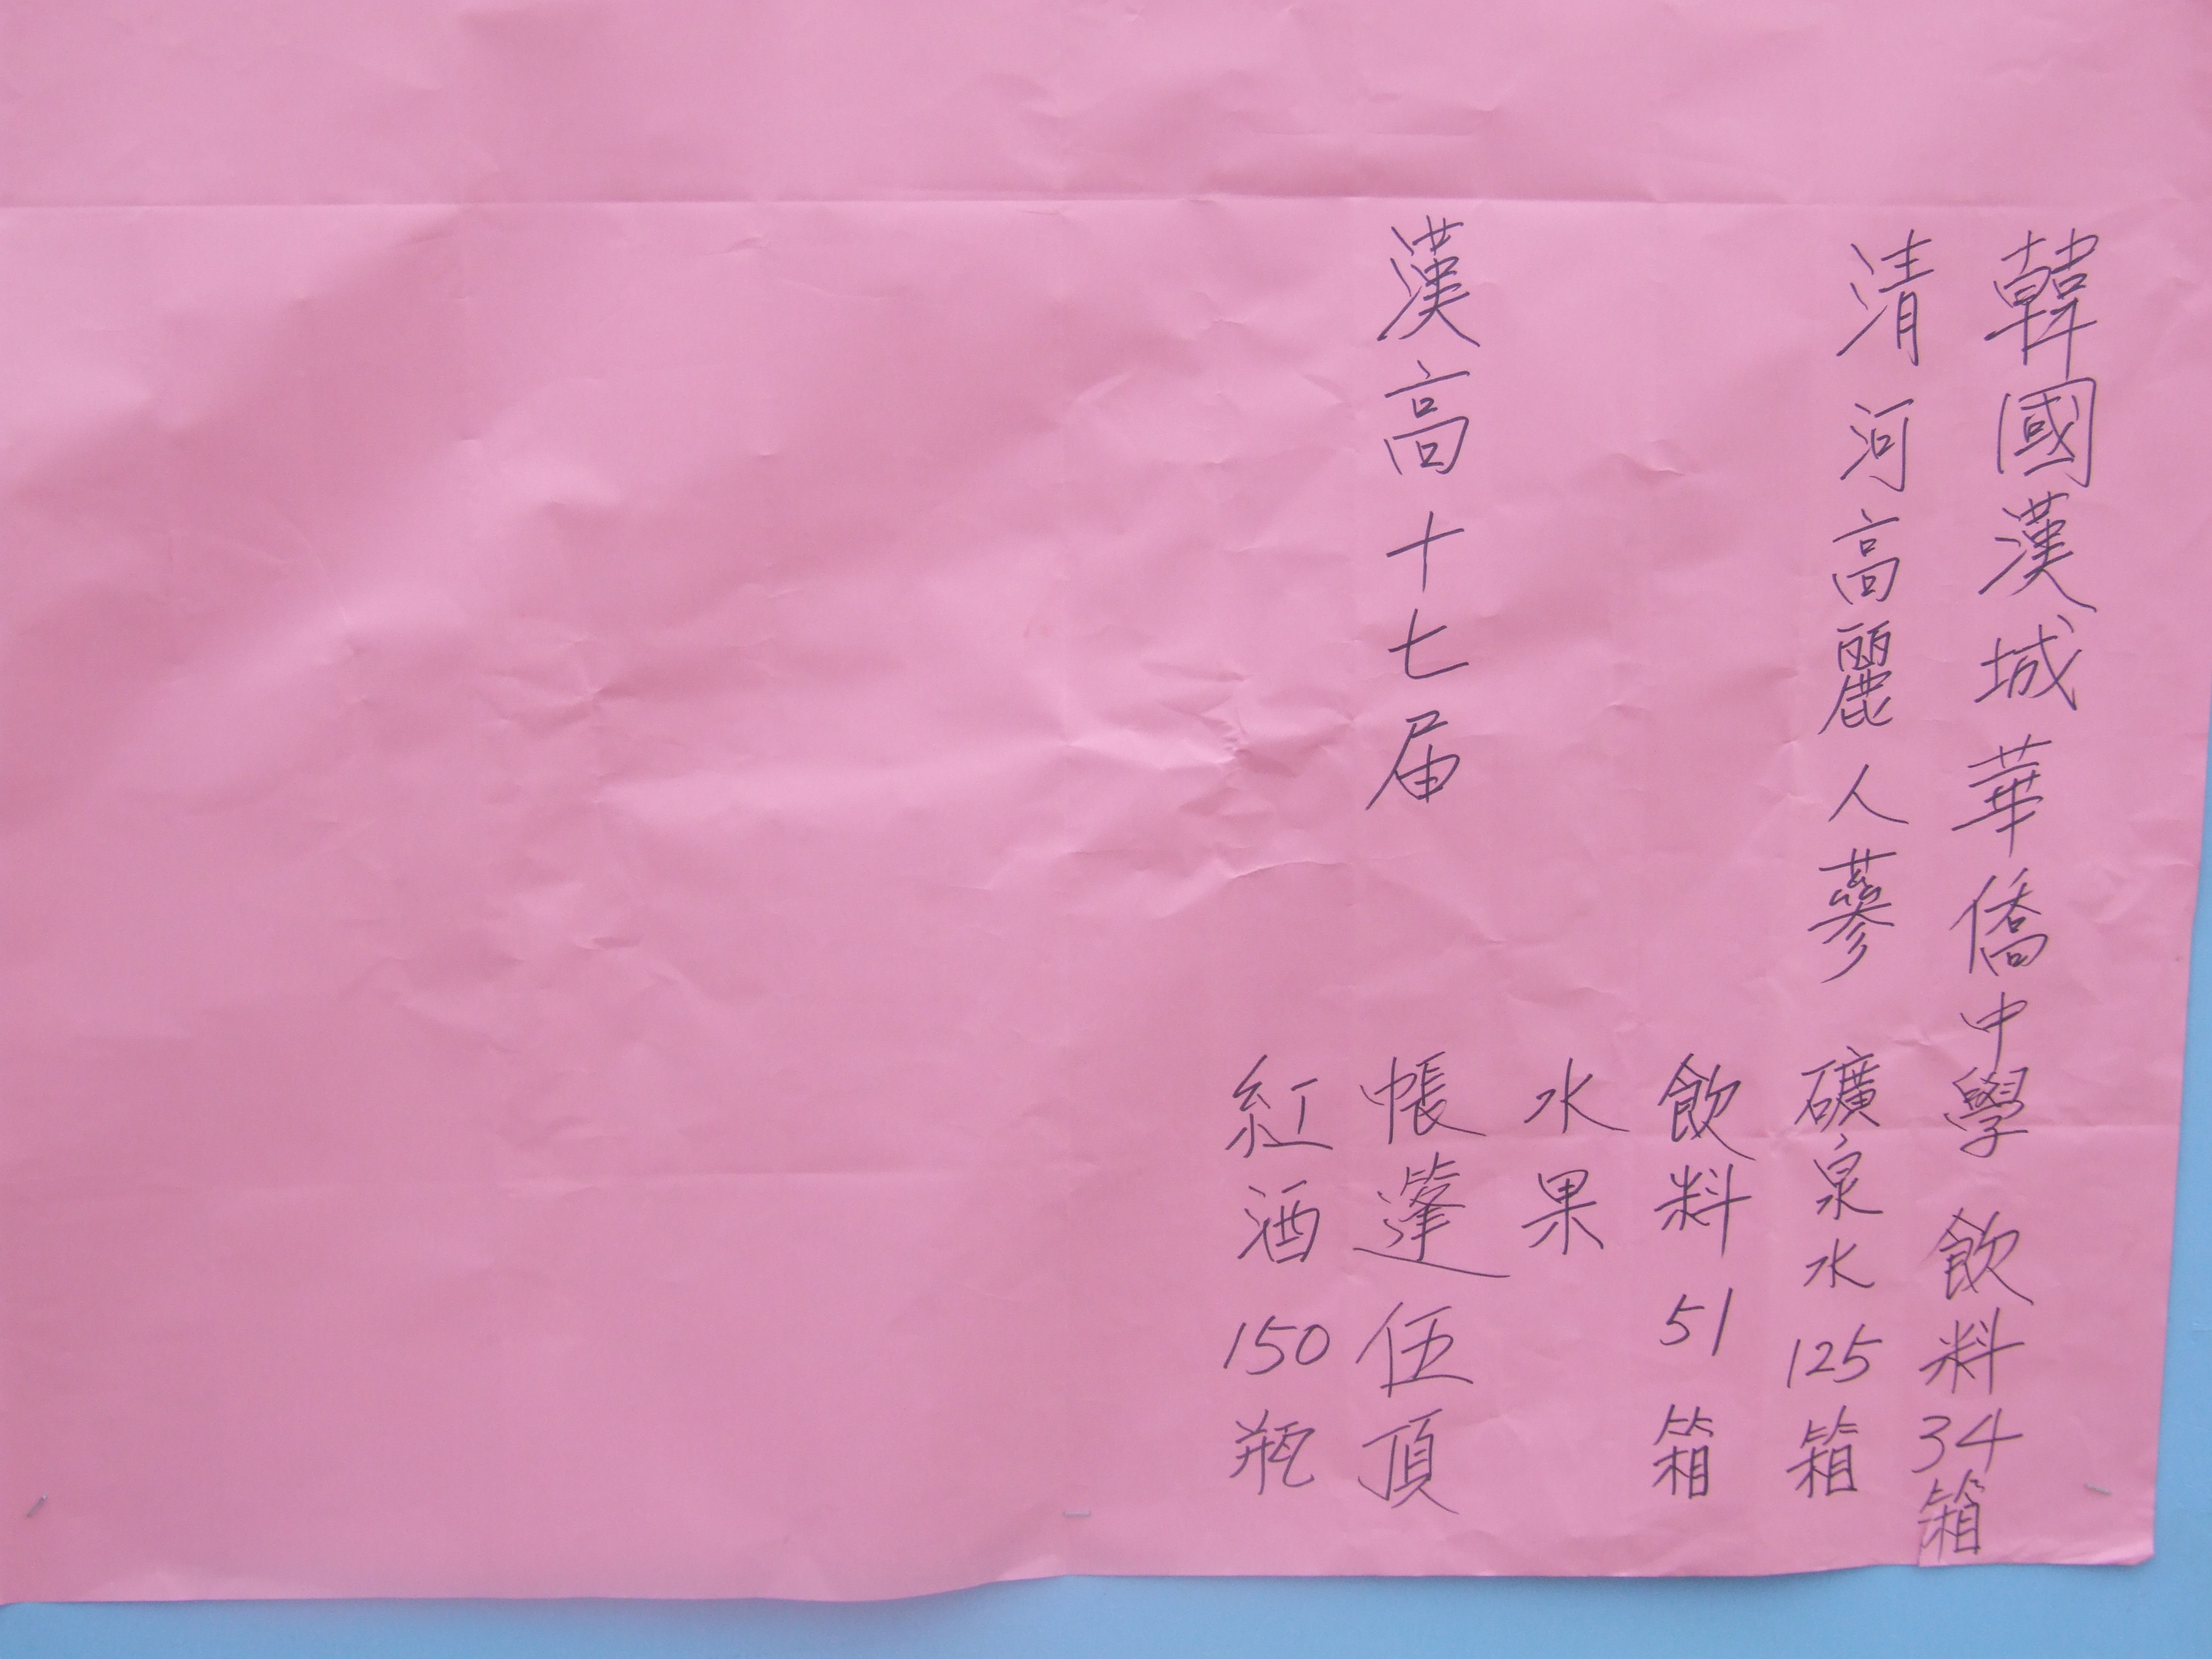 韓國漢城華僑中學 飲料34箱
清河高麗人蔘 礦泉水125箱
飲料51箱
水果
漢高十七届 帳篷伍頂
紅酒150瓶